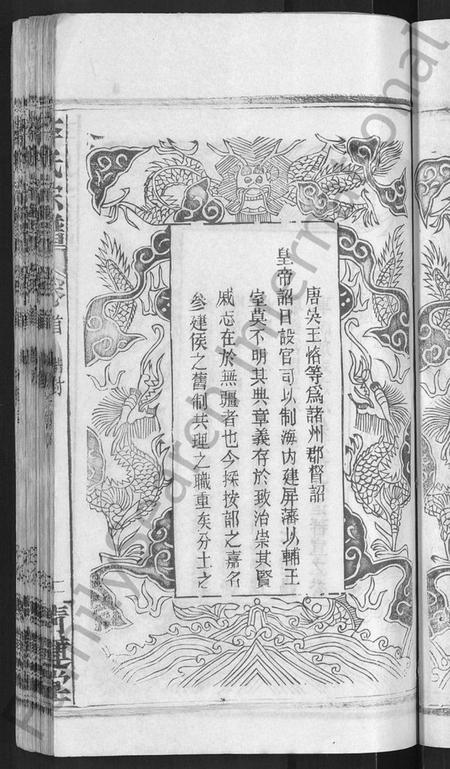 唐吳王恪等為諸州郡督詔
皇帝詔曰設官司以制海內建屏藩以輔王
室莫不明其典章義存於致治崇其賢
戚志在於無疆者也今採按部之嘉名
參建侯之舊制共理之職重矣分土之
氏宗譜
卷首
FamilySearch International